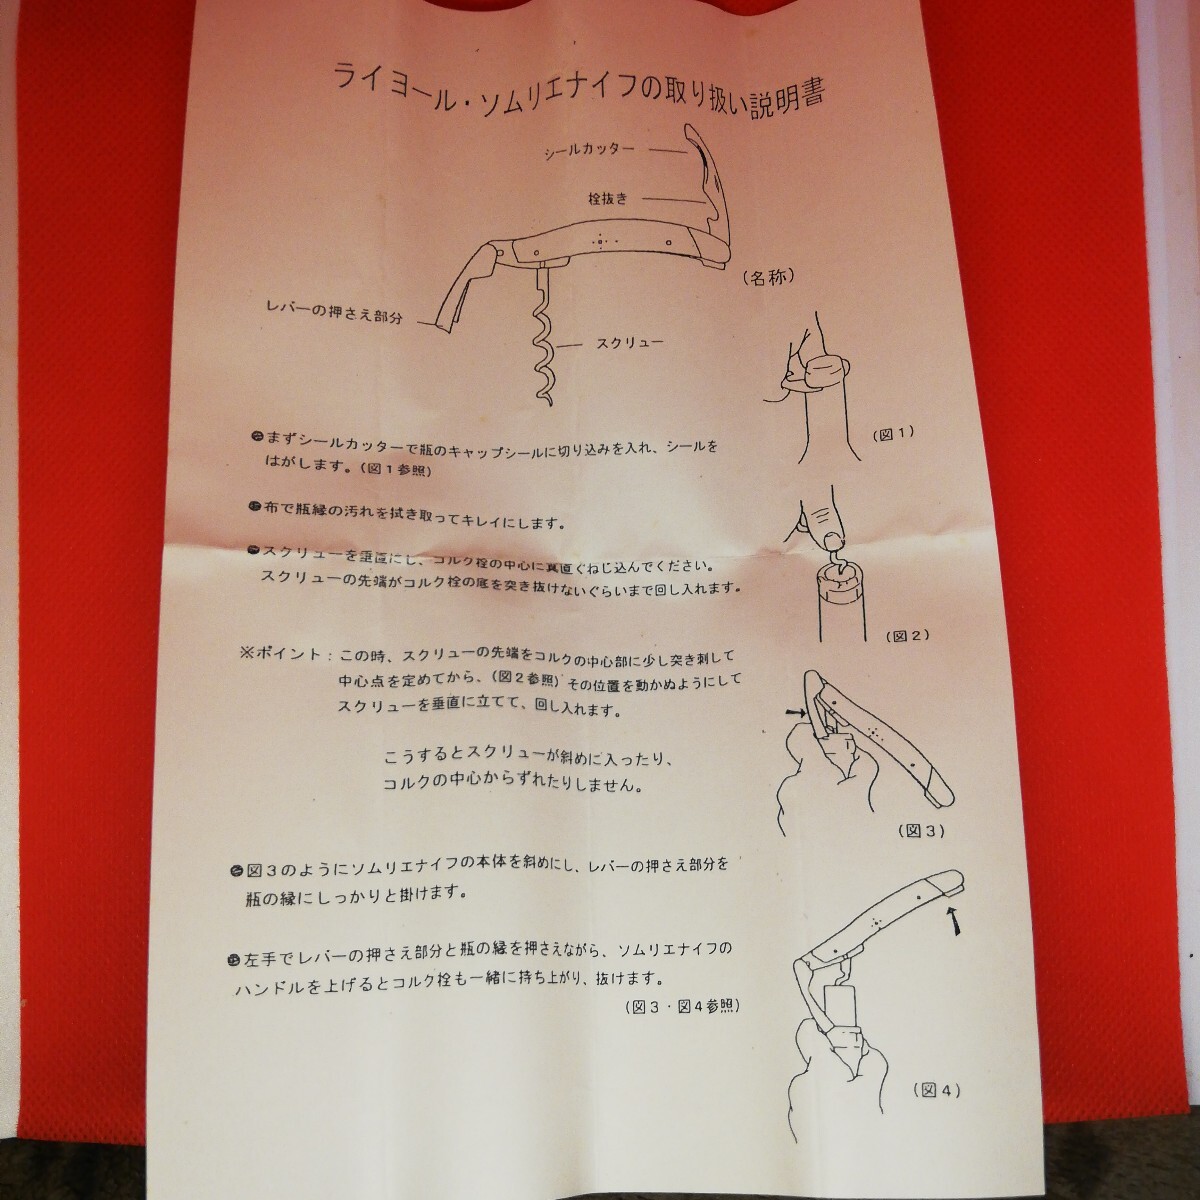 ライヨール・ソムリエナイフの取り扱い説明書
シールカッター
栓抜き
(名称)
レバーの押さえ部分
スクリュー
(図1)
●まずシールカッターで瓶のキャップシールに切り込みを入れ、シールを
はがします。(図1参照)
●布で瓶縁の汚れを拭き取ってキレイにします。
(図2)
●スクリューを垂直にし、コルク栓の中心に真直ぐねじ込んでください。
スクリューの先端がコルク栓の底を突き抜けないぐらいまで回し入れます。
※ポイント:この時、スクリューの先端をコルクの中心部に少し突き刺して
中心点を定めてから、(図2参照)その位置を動かぬようにして
スクリューを垂直に立てて、回し入れます。
こうするとスクリューが斜めに入ったり、
コルクの中心からずれたりしません。
(図3)
●図3のようにソムリエナイフの本体を斜めにし、レバーの押さえ部分を
瓶の縁にしっかりと掛けます。
●左手でレバーの押さえ部分と瓶の縁を押さえながら、ソムリエナイフの
ハンドルを上げるとコルク栓も一緒に持ち上がり、抜けます。
(図3・図4参照)
(図4)